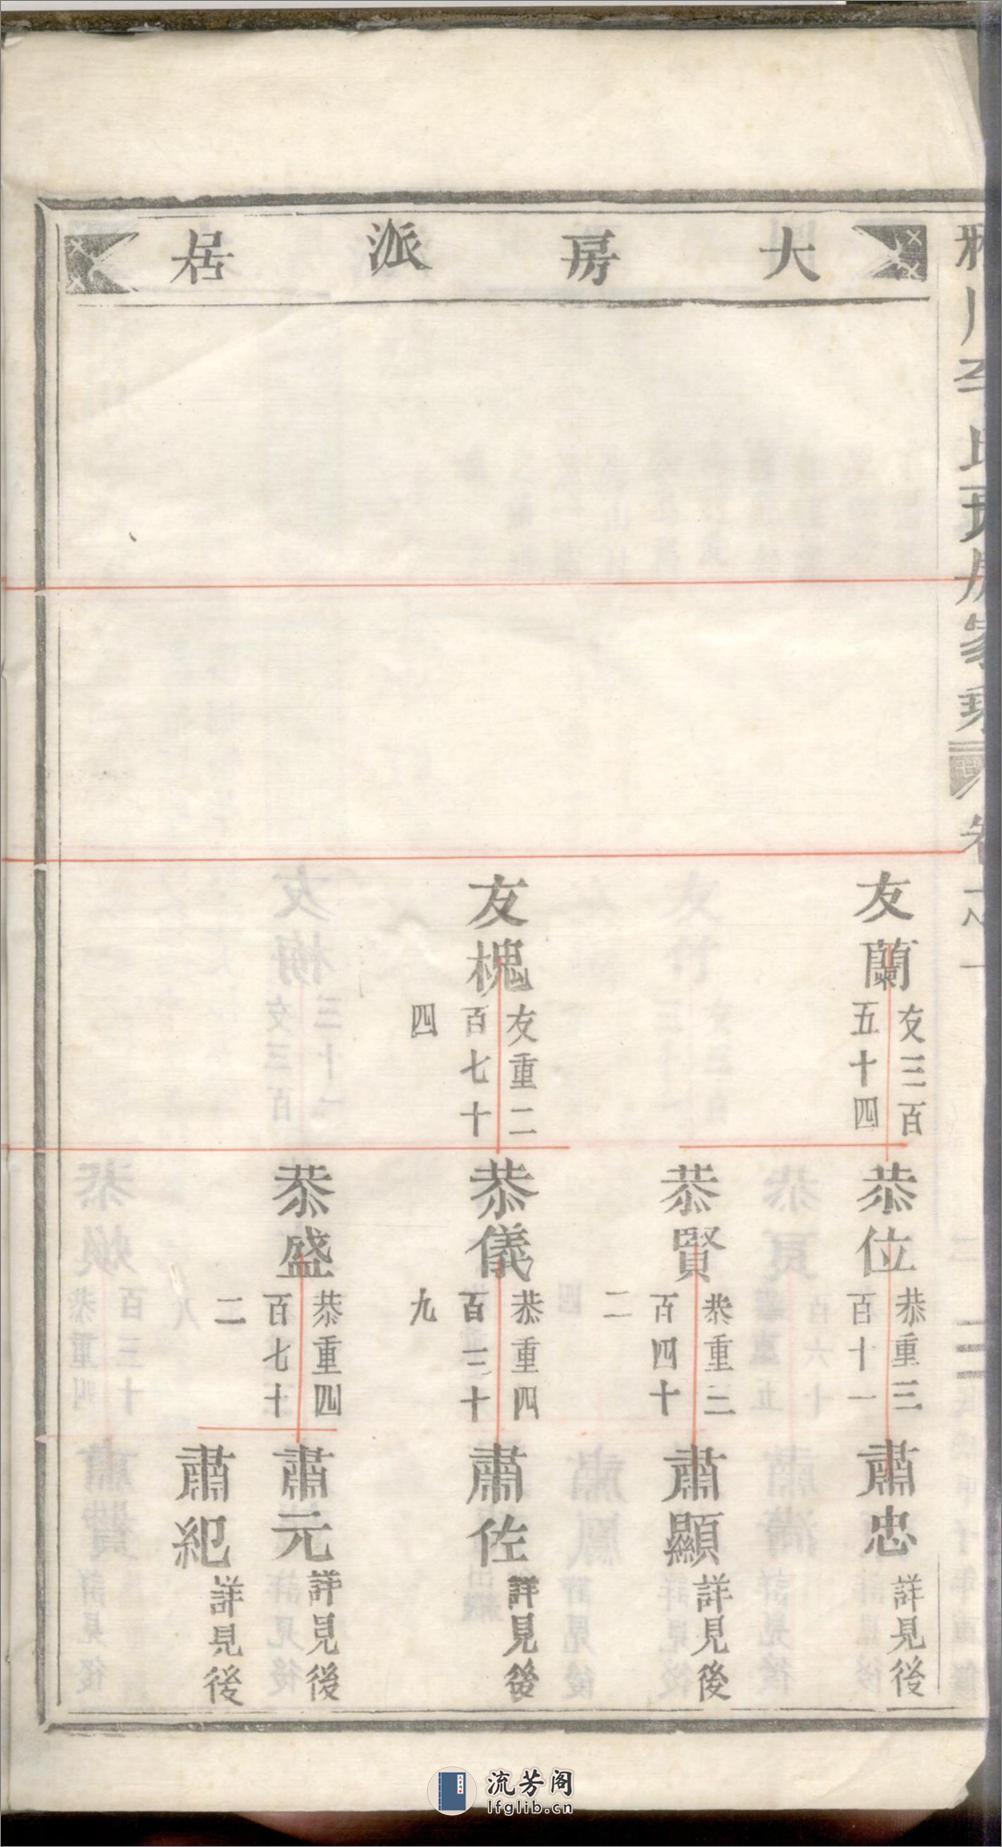 大房派居
友蘭
友三百
五十四
友槐
友重二
百七十
四
恭位
恭重三
百十一
恭賢
恭重三
百四十
二
恭儀
恭重四
百三十
九
恭盛
恭重四
百七十
二
肅忠
詳見後
肅顯
詳見後
肅佐
詳見後
肅元
詳見後
肅紀
詳見後
流芳阁
lfglib.cn